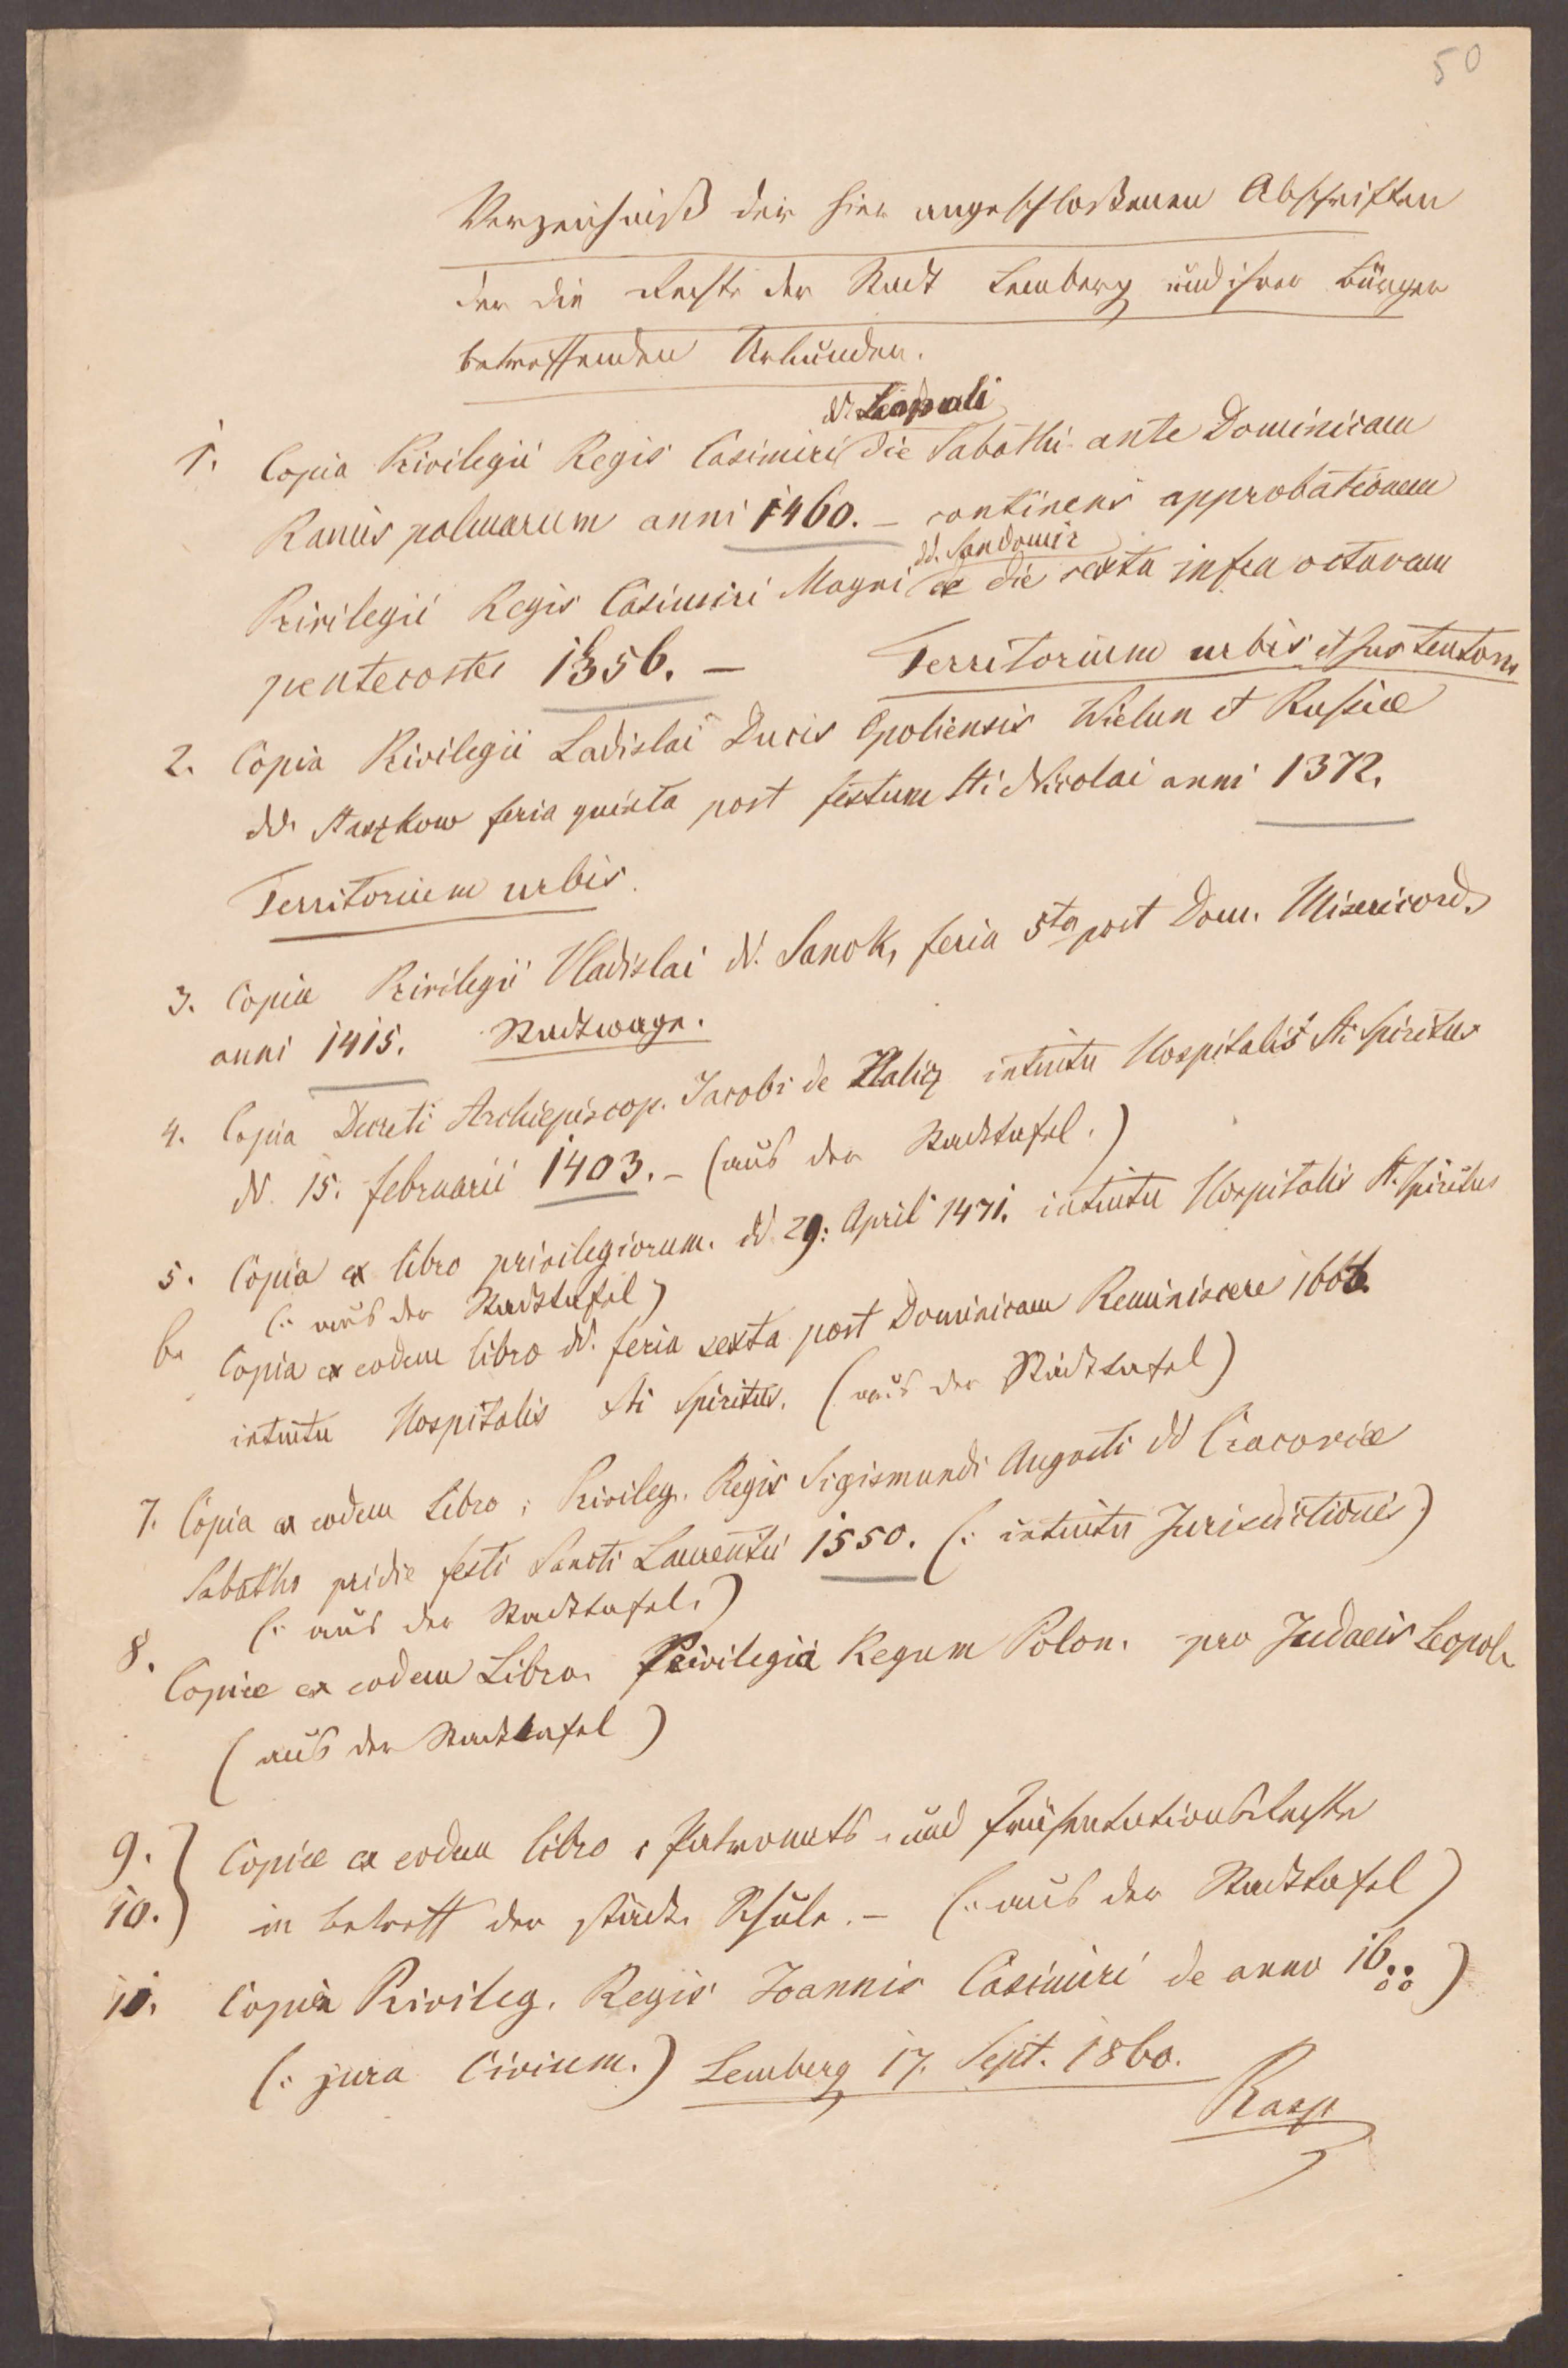 50
Verzeichniß der hier angeschloßenen Abschriften
der die Rechte der Stadt Lemberg und ihrer Bürger
betreffenden Urkunden.
dd. Leopoli
1. Copia Privilegii Regis Casimiri die Sabathi ante Dominicam
Ramis palmarum anni 1460. – continens approbationem
dd. Sandomir
Privilegii Regis Casimiri Magni de die sexta infra octavam
pentecostes 1356. – Territorium urbis et jus teuton
2. Copia Privilegii Ladislai Ducis Opoliensis Wielun et Russiæ
dd. Staszkow feria quinta post festum Sti Nicolai anni 1372.
Territorium urbis.
3. Copiæ Privilegii Vladislai dd. Sanok, feria 5ta post Dom. Misericord.
anni 1415. Stadtwage.
4. Copia Decreti Archiepiscop. Jacobi de Halicz intuitu Hospitalis Sti Spiritus
dd. 15. februarii 1403. – (aus der Stadttafel.)
5. Copia ex libro privilegiorum. dd. 29: April 1471. intuitu Hospitalis St. Spiritus
(: aus der Stadttafel)
6. Copia ex eodem libro dd. feria sexta post Dominicam Reminiscere
intuitu Hospitalis Sti Spiritus. (aus der Stadttafel)
7. Copia ex eodem Libro, Privileg. Regis Sigismundi Augusti dd Cracoviæ
Sabatho pridie festi Sancti Laurentii 1550. (: intuitu Jurisdictionis)
(: aus der Stadttafel.)
8. Copiæ ex eodem Libro. Privilegia Regum Polon. pro Judaeis Leopol.
(aus der Stadttafel)
9. } Copiæ ex eodem libro, Patronats- und Präsentationsrechte
10. } in betreff der städt. Schule. – (: aus der Stadttafel)
11. Copia Privileg. Regis Joannis Casimiri de anno 16..)
(: jura Civium.) Lemberg 17. Sept. 1860.
Rasp